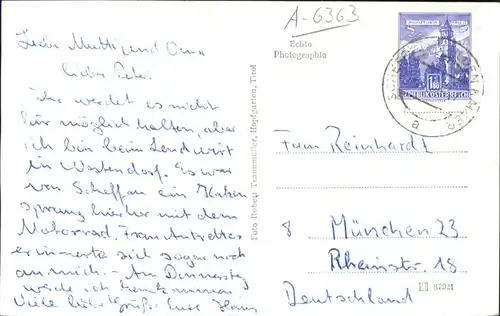 A-6363
Echte
Photographie
Liebe Mutti und Oma
Lieber Peter!
Ihr werdet es nicht
für möglich halten, aber
ich bin beim Landwirt
in Westendorf. Es war
von Scheffau ein Katzen
sprung hierher mit dem
Motorrad. Frau
erinnerte sich sogar noch
an mich. - Am Donnerstag
werde ich heimkommen
Viele liebe Grüße Euer
Foto Robert Tennenmüller, Hopfgarten, Tirol
1.80
REPUBLIK ÖSTERREICH
Fam Reinhardt
8 München 23
Rheinstr. 18
Deutschland